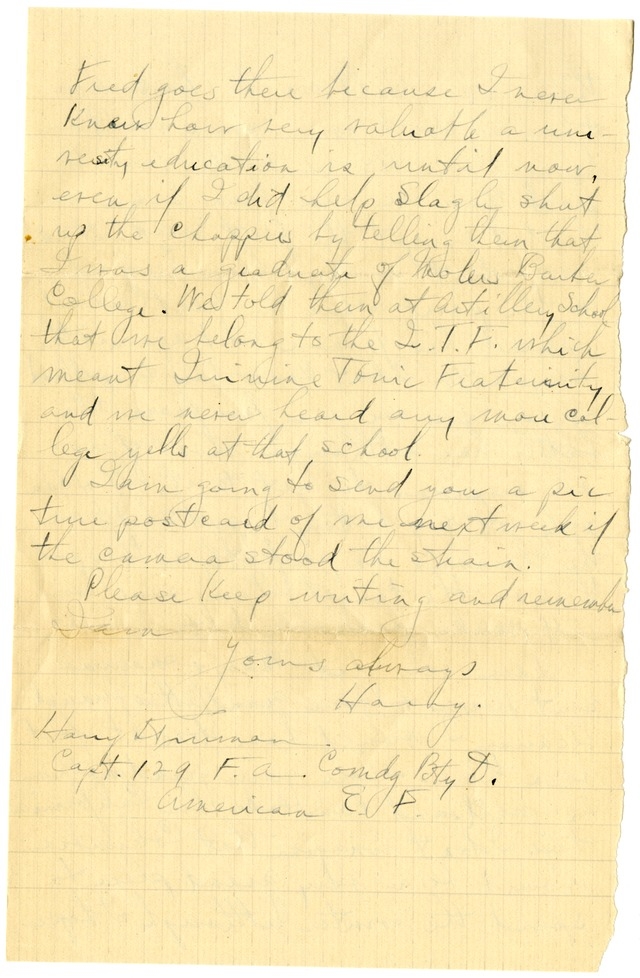 Fred goes there because I never
knew how very valuable a uni-
versity education is until now,
even if I did help Slagle shut
up the chappies by telling them that
I was a graduate of Molers Barber
College. We told them at Artillery School
that we belong to the I.T.F. which
meant Tonic Fraternity
and we never heard any more col-
lege yells at that school.
I am going to send you a pic
ture postcard of me next week if
the camera stood the strain.
Please Keep writing and remember
I am
Yours always
Harry.
Harry S Truman
Capt. 129 F.A. Comdg Bty D.
American E. F.